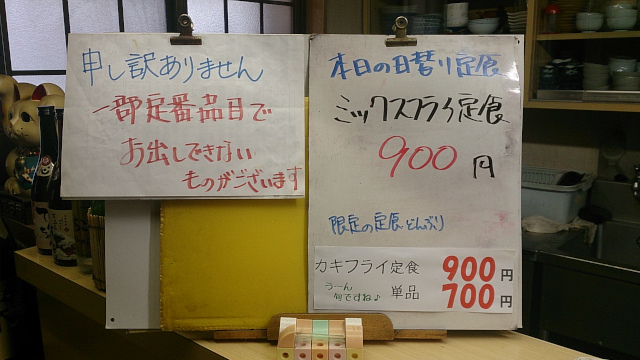 申し訳ありません
一部定番品目で
お出しできない
ものがございます
本日の日替り定食
ミックスフライ定食
900円
限定の定食 どんぶり
カキフライ定食 900円
うーん
旬ですね♪
単品 700円